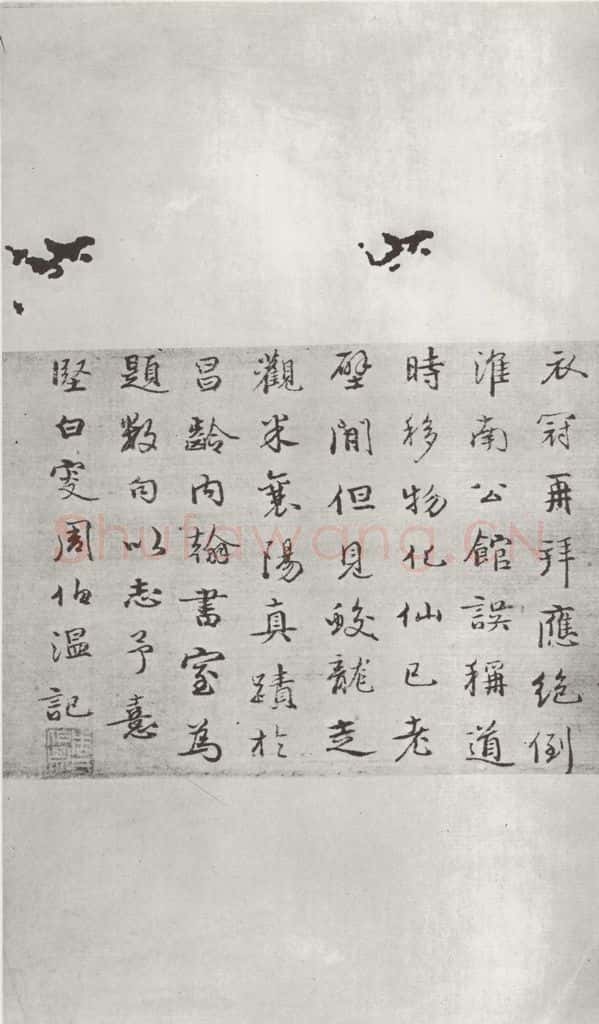 衣冠再拜應絶倒
淮南公館誤稱道
時移物化仙已老
壁間但見蛟龍走
觀米襄陽真蹟於
昌齡内翰書室為
題數句以志予憙
堅白叟周伯溫記
Shufawang.CN